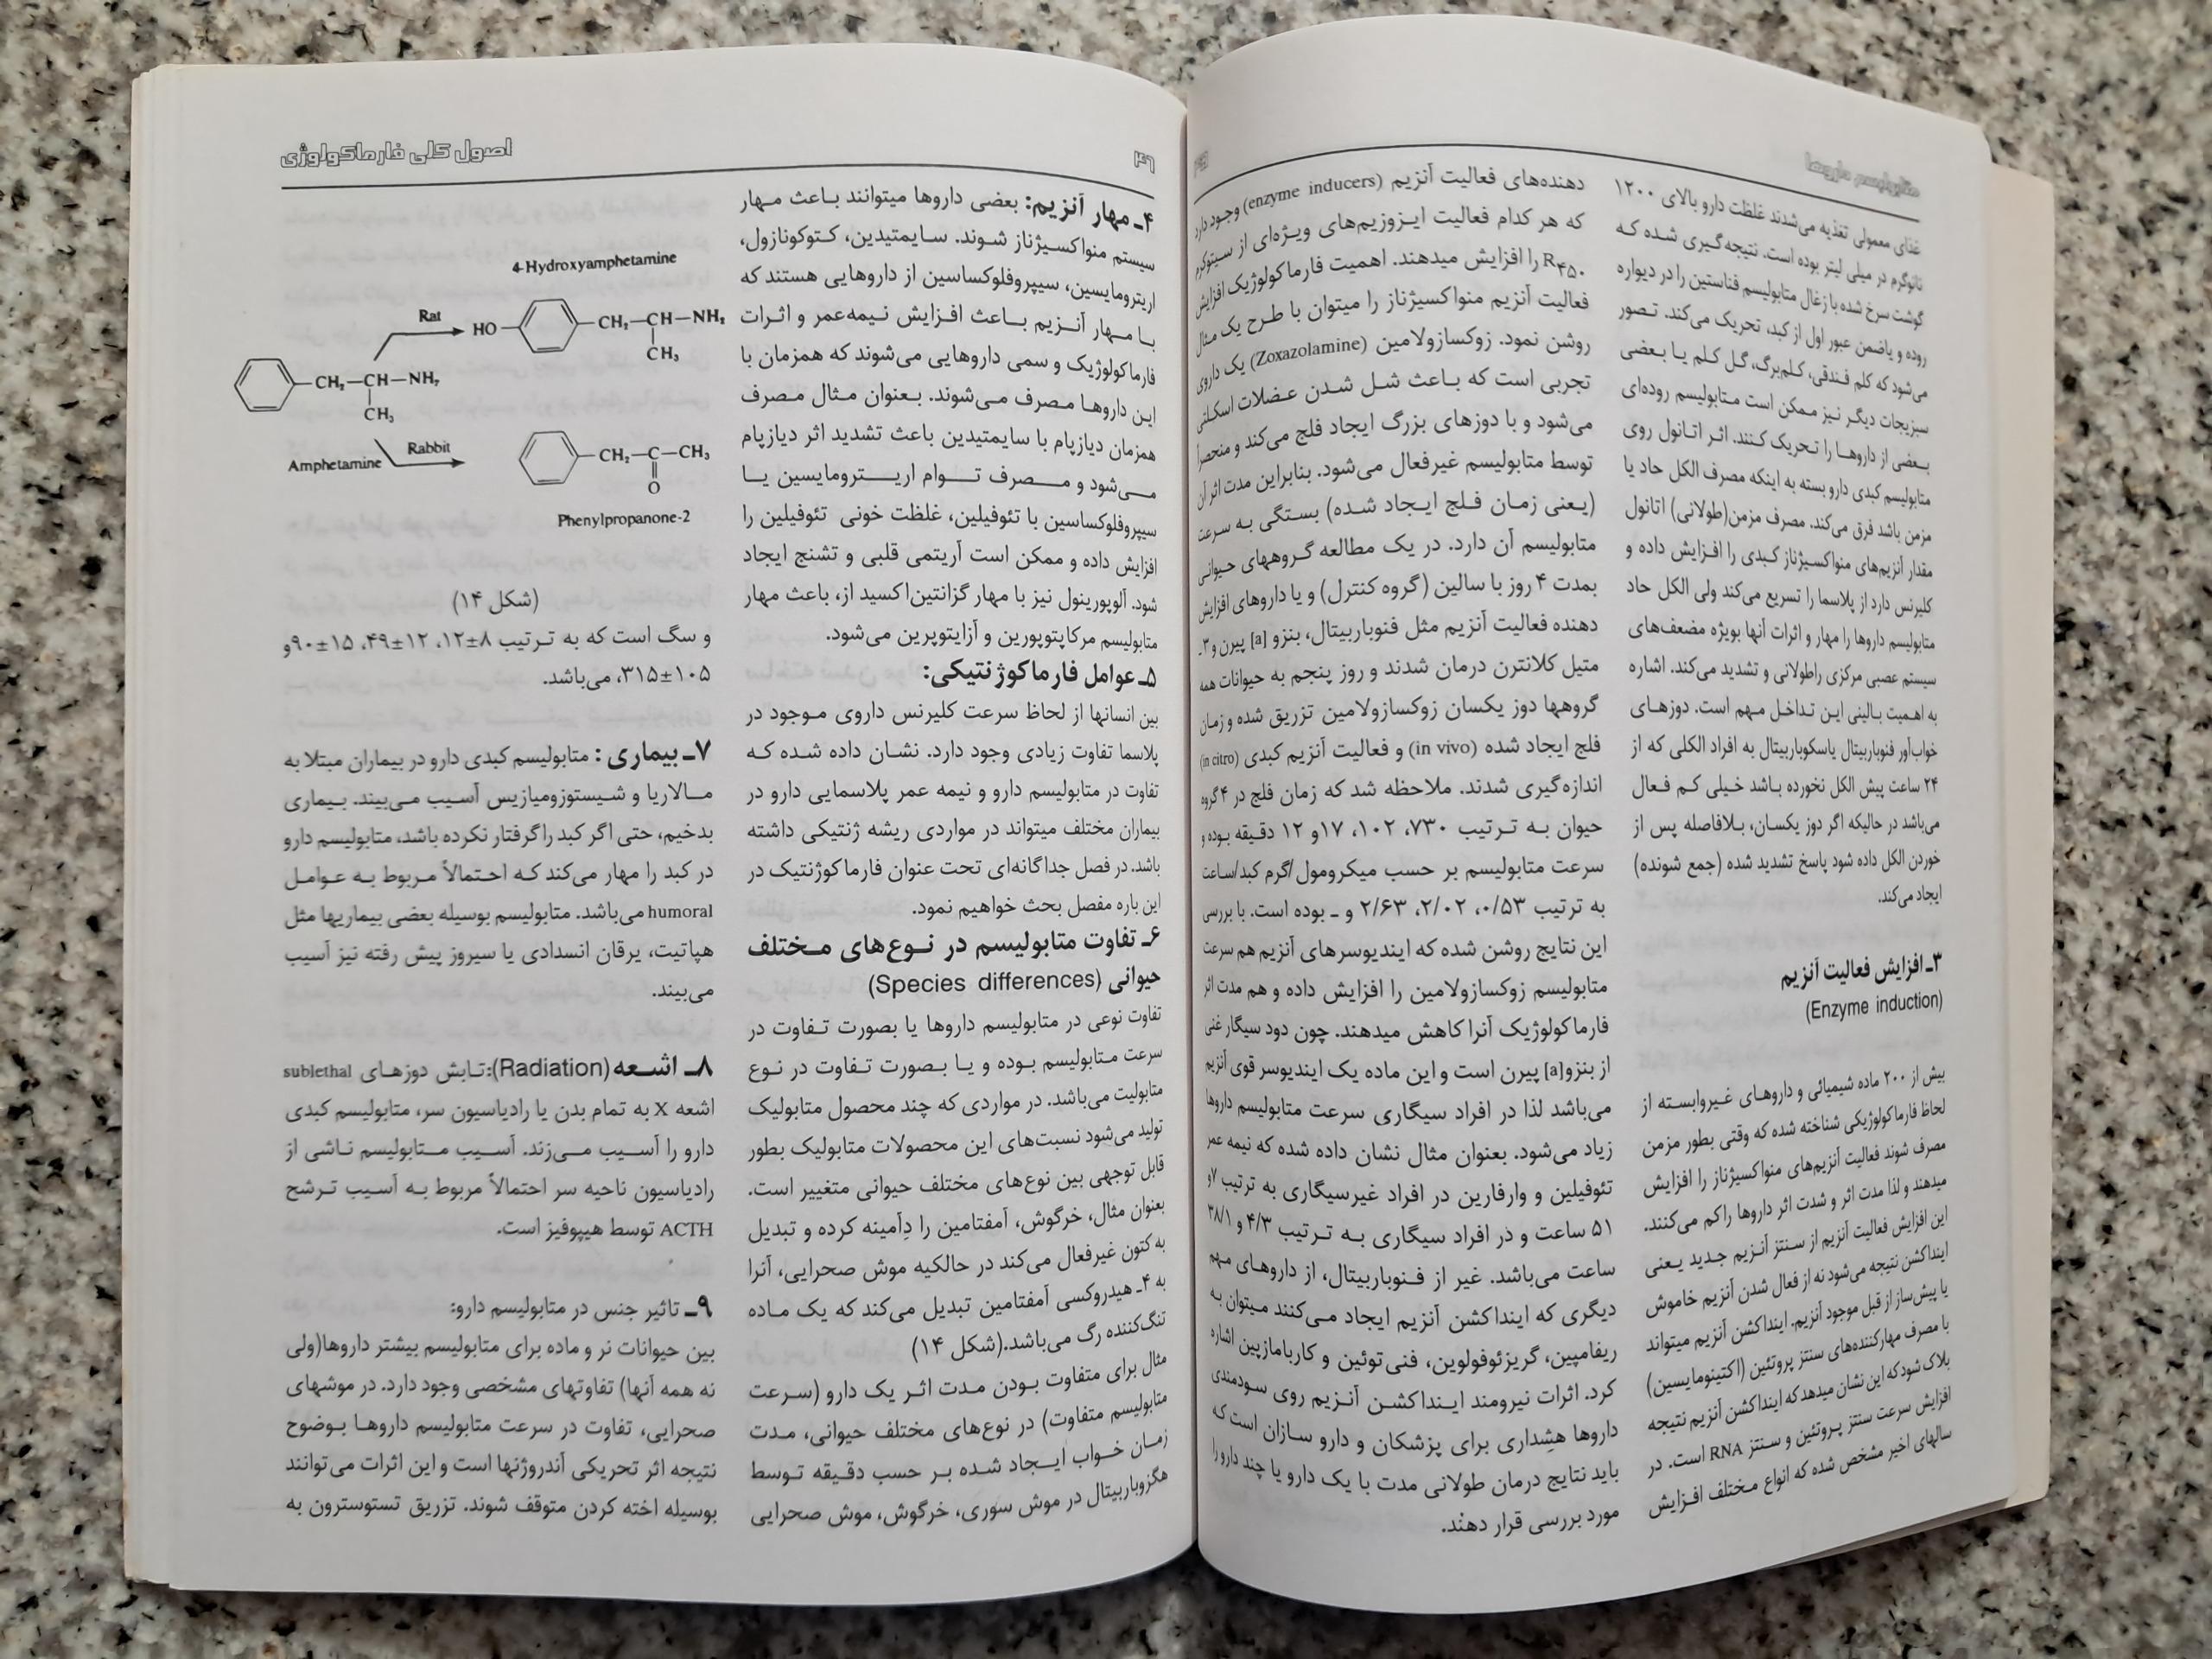 متابولیسم داروها
غذای معمولی تغذیه می‌شدند غلظت دارو بالای ۱۲۰۰
نانوگرم در میلی لیتر بوده است. نتیجه‌گیری شده کـه
گوشت سرخ شده با زغال متابولیسم فناستین را در دیواره
روده و یاضمن عبور اول از کبد، تحریک می‌کند. تـصور
می‌شود که کلم فـندقی، کـلم‌برگ، گـل کـلم یـا بـعضی
سبزیجات دیگـر نیـز مـمکن است مـتابولیسم روده‌ای
بـعضی از داروهـا را تـحریک کـنند. اثـر اتـانول روی
متابولیسم کبدی دارو بسته به اینکه مصرف الکل حاد یا
مزمن باشد فرق می‌کند. مصرف مزمن(طولانی) اتانول
مقدار آنزیم‌های منواکسـیژناز کـبدی را افـزایش داده و
کلیرنس دارد از پلاسما را تسریع می‌کند ولی الکل حاد
متابولیسم داروها را مهار و اثرات آنها بویژه مضعف‌های
سیستم عصبی مرکزی راطولانی و تشدید می‌کند. اشاره
به اهـمیت بـالینی ایـن تـداخـل مـهم است. دوزهـای
خواب‌آور فنوباربیتال یاسکوباربیتال به افراد الکلی که از
۲۴ ساعت پیش الکل نخورده بـاشد خـیلی کـم فـعال
می‌باشد در حالیکه اگر دوز یکسان، بـلافاصله پس از
خوردن الکل داده شود پاسخ تشدید شده (جمع شونده)
ایجاد می‌کند.
۳ـ افزایش فعالیت آنزیم
(Enzyme induction)
بیش از ۲۰۰ ماده شیمیائی و داروهـای غـیروابسـته از
لحاظ فارماکولوژیکی شناخته شده که وقتی بطور مزمن
مصرف شوند فعالیت آنزیم‌های منواکسیژناز را افزایش
میدهند و لذا مدت اثر و شدت اثر داروها راکم می‌کنند.
این افزایش فعالیت آنزیم از سـنتز آنـزیم جـدید یـعنی
اینداکشن نتیجه می‌شود نه از فعال شدن آنزیم خاموش
یا پیش‌ساز از قبل موجود آنزیم. اینداکشن آنزیم میتواند
با مصرف مهارکننده‌های سنتز پروتئین (اکتینومایسین)
بلاک شود که این نشان میدهد که اینداکشن آنزیم نتیجه
افزایش سرعت سنتز پـروتئین و سـنتز RNA است. در
سالهای اخیر مشخص شده که انواع مـختلف افـزایش
دهنده‌های فعالیت آنزیم (enzyme inducers) وجـود دارد
که هر کدام فعالیت ایـزوزیم‌های ویـژه‌ای از سـیتوکرم
R۴۵۰ را افزایش میدهند. اهمیت فارماکولوژیک افزایش
فعالیت آنزیم منواکسیژناز را میتوان با طـرح یک مـثال
روشن نمود. زوکسازولامین (Zoxazolamine) یک داروی
تجربی است که بـاعث شـل شـدن عـضلات اسکـلتی
می‌شود و با دوزهای بزرگ ایجاد فلج می‌کند و منحصراً
توسط متابولیسم غیرفعال می‌شود. بنابراین مدت اثر آن
(یـعنی زمـان فـلج ایـجاد شـده) بسـتگی بـه سـرعت
متابولیسم آن دارد. در یک مطالعه گـروههای حـیوانی
بمدت ۴ روز با سالین (گروه کنترل) و یا داروهای افزایش
دهنده فعالیت آنزیم مثل فنوباربیتال، بنزو [a] پیرن و ۳ـ
متیل کلانترن درمان شدند و روز پنجم به حیوانات همه
گروهها دوز یکسان زوکسازولامین تزریق شده و زمان
فلج ایجاد شده (in vivo) و فعالیت آنزیم کبدی (in citro)
اندازه‌گیری شدند. ملاحظه شد که زمان فلج در ۴ گروه
حیوان به تـرتیب ۷۳۰، ۱۰۲، ۱۷و ۱۲ دقـیقه بـوده و
سرعت متابولیسم بر حسب میکرومول/گرم کبد/ساعت
به ترتیب ۰/۵۳، ۲/۰۲، ۲/۶۳ و ـ بوده است. با بررسی
این نتایج روشن شده که ایندیوسرهای آنزیم هم سرعت
متابولیسم زوکسازولامین را افزایش داده و هم مدت اثر
فارماکولوژیک آنرا کاهش میدهند. چون دود سیگار غنی
از بنزو[a] پیرن است و این ماده یک ایندیوسر قوی آنزیم
می‌باشد لذا در افراد سیگاری سرعت متابولیسم داروها
زیاد می‌شود. بعنوان مثال نشان داده شده که نیمه عمر
تئوفیلین و وارفارین در افراد غیرسیگاری به ترتیب ۷و
۵۱ ساعت و در افراد سیگاری بـه تـرتیب ۴/۳ و ۳۸/۱
ساعت می‌باشد. غیر از فـنوباربیتال، از داروهـای مـهم
دیگری که اینداکشن آنزیم ایجاد مـی‌کنند مـیتوان بـه
ریفامپین، گریزئوفولوین، فنی‌توئین و کاربامازپین اشاره
کرد. اثرات نیرومند ایـنداکشـن آنـزیم روی سـودمندی
داروها هشداری برای پزشکان و دارو سـازان است کـه
باید نتایج درمان طولانی مدت با یک دارو یا چند دارو را
مورد بررسی قرار دهند.
۴۶
اصول کلی فارماکولوژی
۴ـ مهار آنزیم: بعضی داروها میتوانند بـاعث مـهار
سیستم منواکسـیژناز شـوند. سـایمتیدین، کـتوکونازول،
اریترومایسین، سیپروفلوکساسین از داروهایی هستند که
بـا مـهار آنـزیم بـاعث افـزایش نـیمه‌عمر و اثـرات
فارماکولوژیک و سمی داروهایی می‌شوند که همزمان با
ایـن داروهـا مـصرف مـی‌شوند. بـعنوان مـثال مـصرف
همزمان دیازپام با سایمتیدین باعث تشدید اثر دیازپام
مـی‌شود و مـصرف تـوام اریـترومایسین یـا
سیپروفلوکساسین با تئوفیلین، غلظت خونی تئوفیلین را
افزایش داده و ممکن است آریتمی قلبی و تشنج ایجاد
شود. آلوپورینول نیز با مهار گزانتین‌اکسید از، باعث مهار
متابولیسم مرکاپتوپورین و آزایتوپرین می‌شود.
۵ـ عوامل فارماکوژنتیکی:
بین انسانها از لحاظ سرعت کلیرنس داروی مـوجود در
پلاسما تفاوت زیادی وجود دارد. نشـان داده شـده کـه
تفاوت در متابولیسم دارو و نیمه عمر پلاسمایی دارو در
بیماران مختلف میتواند در مواردی ریشه ژنتیکی داشته
باشد. در فصل جداگانه‌ای تحت عنوان فارماکوژنتیک در
این باره مفصل بحث خواهیم نمود.
۶ـ تفاوت متابولیسم در نـوع‌های مـختلف
حیوانی (Species differences)
تفاوت نوعی در متابولیسم داروها یا بصورت تـفاوت در
سرعت مـتابولیسم بـوده و یـا بـصورت تـفاوت در نـوع
متابولیت می‌باشد. در مواردی که چند محصول متابولیک
تولید می‌شود نسبت‌های این محصولات متابولیک بطور
قابل توجهی بین نوع‌های مختلف حیوانی متغییر است.
بعنوان مثال، خرگوش، آمفتامین را دِآمینه کرده و تبدیل
به کتون غیرفعال می‌کند در حالکیه موش صحرایی، آنرا
به ۴ـ هیدروکسی آمفتامین تبدیل می‌کند که یک مـاده
تنگ‌کننده رگ می‌باشد.(شکل ۱۴)
مثال برای متفاوت بـودن مـدت اثـر یک دارو (سـرعت
متابولیسم متفاوت) در نوع‌های مختلف حیوانی، مـدت
زمـان خـواب ایـجاد شـده بـر حسب دقـیقه تـوسط
هگزوباربیتال در موش سوری، خرگوش، موش صحرایی
4-Hydroxyamphetamine
Rat
HO CH₂—CH—NH₂
CH₃
CH₂—CH—NH₂
CH₃
Amphetamine
Rabbit
CH₂—C—CH₃
O
Phenylpropanone-2
(شکل ۱۴)
و سگ است که به تـرتیب ۸±۱۲، ۱۲±۴۹، ۱۵±۹۰و
۱۰۵±۳۱۵، می‌باشد.
۷ـ بیماری : متابولیسم کبدی دارو در بیماران مبتلا به
مـالاریا و شـیستوزومیازیس آسـیب مـی‌بیند. بـیماری
بدخیم، حتی اگر کبد راگرفتار نکرده باشد، متابولیسم دارو
در کبد را مهار می‌کند کـه احـتمالاً مـربوط بـه عـوامـل
humoral می‌باشد. متابولیسم بوسیله بعضی بیماریها مثل
هپاتیت، یرقان انسدادی یا سیروز پیش رفته نیز آسیب
می‌بیند.
۸ـ اشـعه (Radiation):تـابش دوزهـای sublethal
اشعه X به تمام بدن یا رادیاسیون سر، متابولیسم کبدی
دارو را آسـیب مـی‌زند. آسـیب مـتابولیسم نـاشی از
رادیاسیون ناحیه سر احتمالاً مربوط بـه آسـیب تـرشح
ACTH توسط هیپوفیز است.
۹ـ تاثیر جنس در متابولیسم دارو:
بین حیوانات نر و ماده برای متابولیسم بیشتر داروها(ولی
نه همه آنها) تفاوتهای مشخصی وجود دارد. در موشهای
صحرایی، تفاوت در سرعت متابولیسم داروهـا بـوضوح
نتیجه اثر تحریکی آندروژنها است و این اثرات می‌توانند
بوسیله اخته کردن متوقف شوند. تزریق تستوسترون به